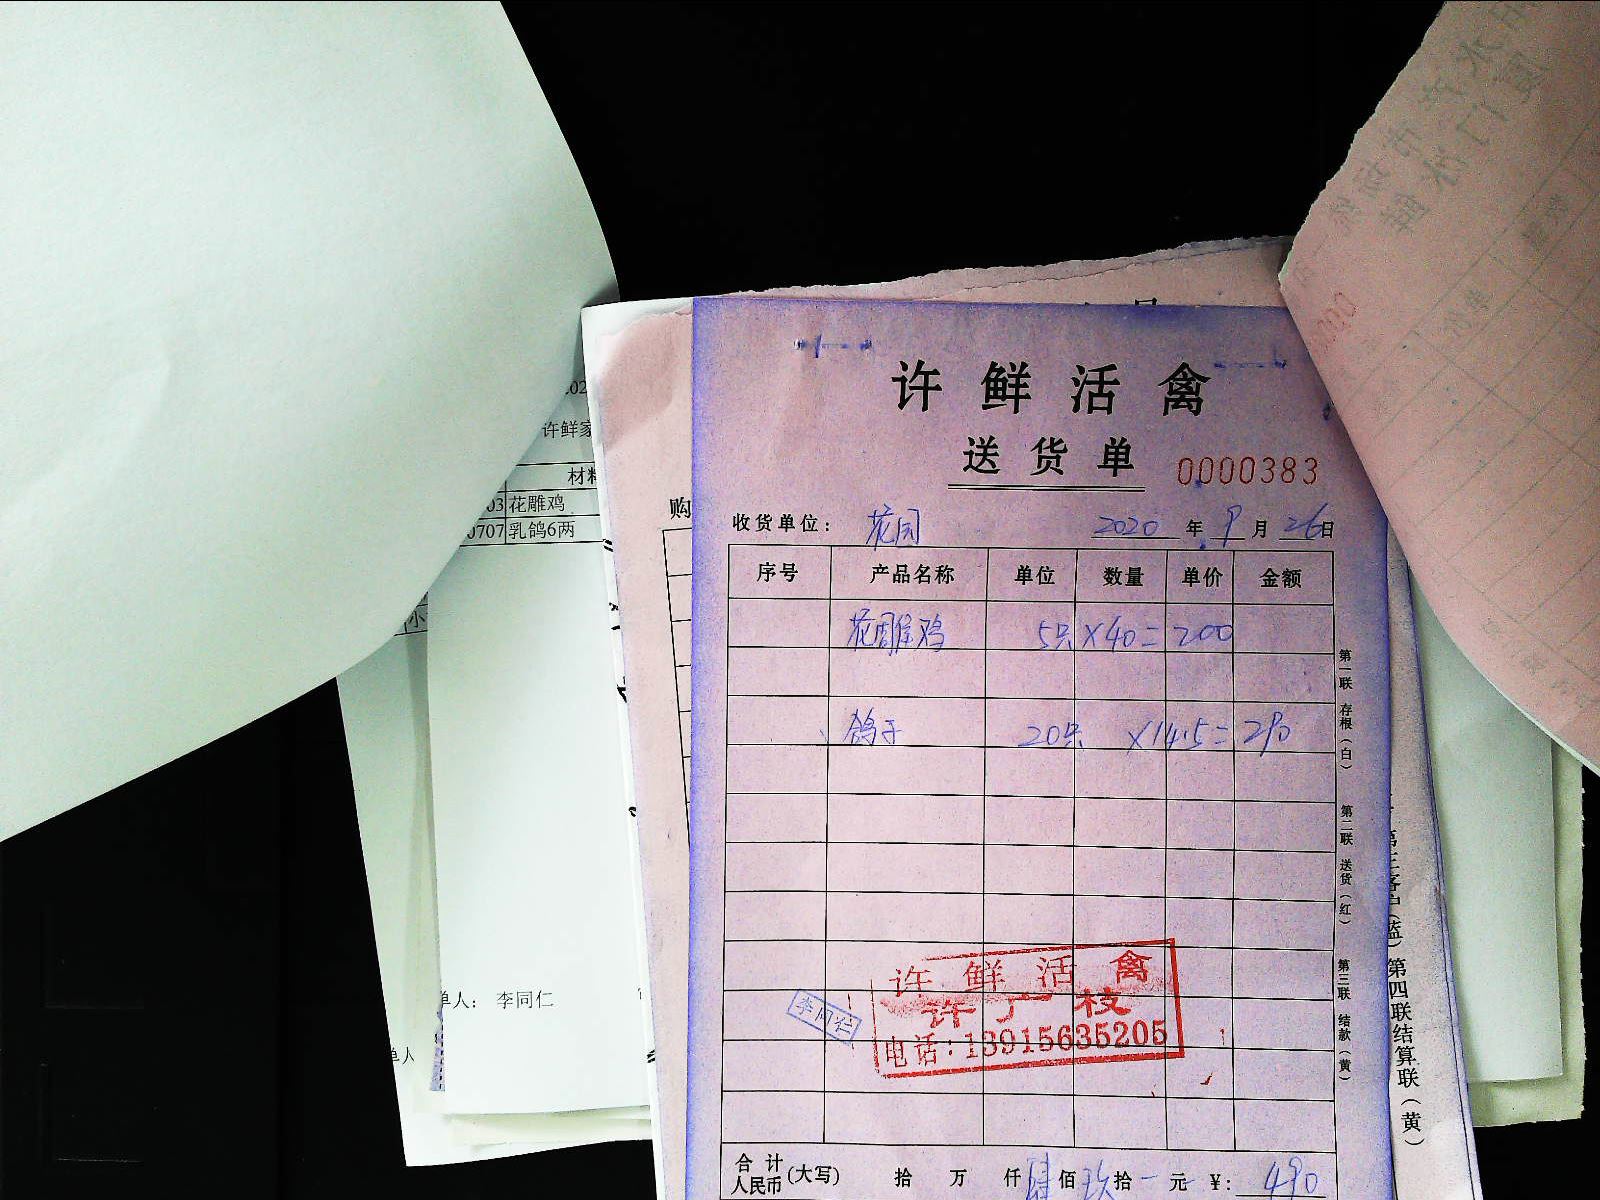 许鲜活禽
送货单 0000383
收货单位： 花园 2020 年 9 月 26 日
序号 产品名称 单位 数量 单价 金额
花雕鸡 5只 ×40= 200
鸽子 20只 ×14.5= 290
许鲜活禽
许广枝
电话：13915635205
李同仁
合计人民币(大写) 拾 万 仟 肆 佰 玖 拾 元 ¥: 490
第一联 存根（白） 第二联 送货（红） 第三联 结款（黄）
第四联结算联（黄）
许鲜家
材料
03 花雕鸡
0707 乳鸽6两
单人： 李同仁
单人
购